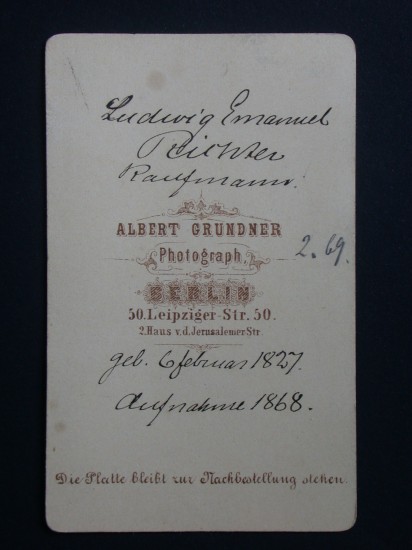 Ludwig Emanuel
Richter
Kaufmann.
ALBERT GRUNDNER
Photograph.
2.69.
BERLIN
50.Leipziger-Str.50.
2.Haus v.d.Jerusalemer Str.
geb. 6 februar 1827.
Aufnahme 1868.
Die Platte bleibt zur Nachbestellung stehen.